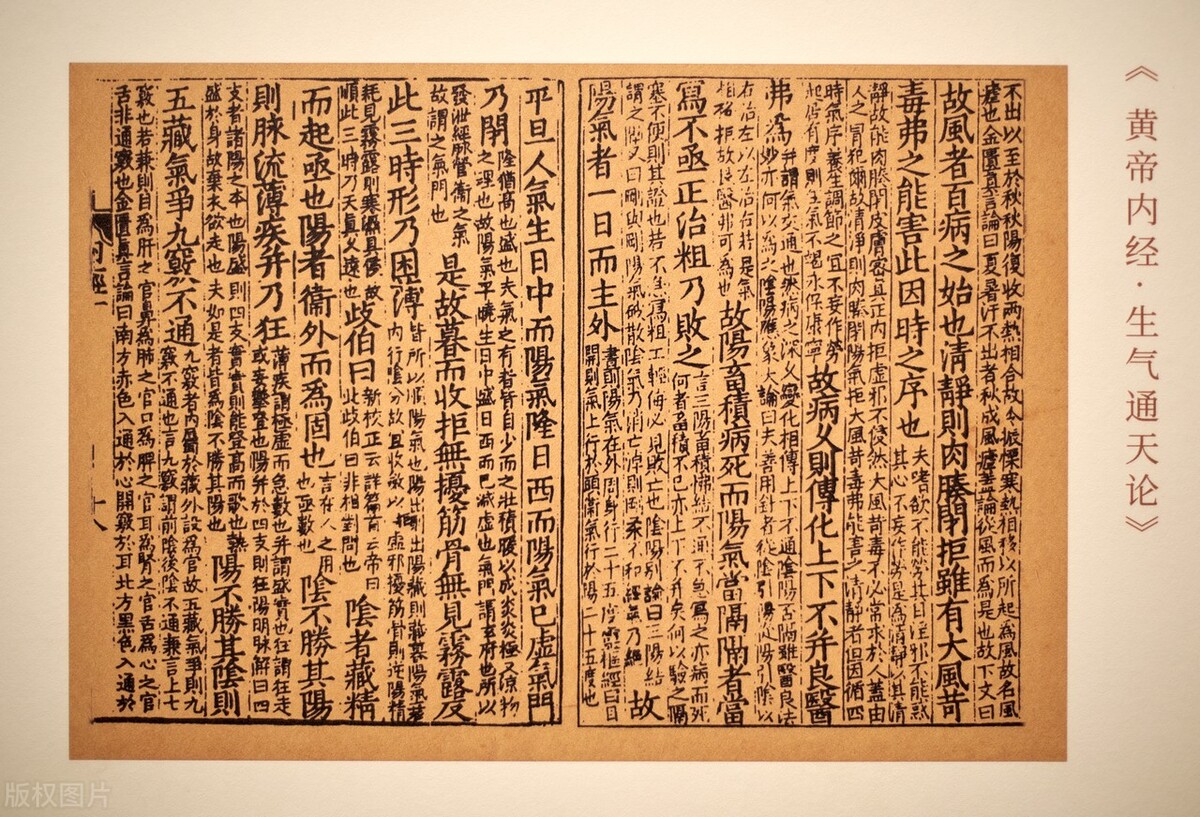 《黄帝内经·生气通天论》
不出以至於秋秋陽復收兩熱相合故令振慄寒熱相移以所起為風故名風
瘧也金匱真言論曰夏暑汗不出者秋成風瘧蓋論從風而為是也故下文曰
故風者百病之始也清靜則肉腠閉拒雖有大風苛
毒弗之能害此因時之序也 夫嗜欲不能勞其目淫邪不能惑其心不妄作勞是為清靜以其清
靜故能肉腠閉皮膚密真正內拒虛邪不侵然大風苛毒不必常求於人蓋由
人之冒犯爾故清淨則肉腠閉陽氣拒大風苛毒弗能害之清靜者但因循四
時氣序養生調節之宜不妄作勞起居有度則生氣不竭永保康寧 故病久則傳化上下不并良醫
弗為 并謂氣交通也然病之深久變化相傳上下不通陰陽否隔雖醫良法妙亦何以為之陰陽應象大論曰夫善用針者從陰引陽從陽引陰以
右治左以左治右若是氣相格拒故良醫弗可為也 故陽畜積病死而陽氣當隔隔者當
寫不亟正治粗乃敗之 言三陽畜積怫結不通不急寫之亦病而死何者畜積不已亦上下不并矣何以驗之隔
塞不便則其證也若不急寫粗工輕侮必見敗亡也陰陽別論曰三陽結
謂之隔又曰剛與剛陽氣破散陰氣乃消亡淖則剛柔不和經氣乃絕 故
陽氣者一日而主外 晝則陽氣在外周身行二十五度靈樞經曰目開則氣上行於頭衞氣行於陽二十五度也
平旦人氣生日中而陽氣隆日西而陽氣已虛氣門
乃閉 隆猶高也盛也夫氣之有者皆自少而之壯積暖以成炎炎極又涼物之理也故陽氣平曉生日中盛日西而已減虛也氣門謂玄府也所以
發泄經脉營衞之氣故謂之氣門也 是故暮而收拒無擾筋骨無見霧露反
此三時形乃困薄 皆所以順陽氣也陽出則出陽藏則藏暮陽氣衰內行陰分故宜收斂以拒虛邪擾筋骨則逆陽精
耗見霧露則寒濕具侵故順此三時乃天真久遠也 歧伯曰 新校正云詳篇首云帝曰此歧伯曰非相對問也 陰者藏精
而起亟也陽者衞外而為固也 言在人之用也亟數也 陰不勝其陽
則脉流薄疾并乃狂 薄疾謂極虛而急數也并謂盛實也狂謂狂走或妄攀登也陽并於四支則狂陽明脉解曰四
支者諸陽之本也陽盛則四支實實則能登高而歌也熱
盛於身故棄衣欲走也夫如是者皆為陰不勝其陽也 陽不勝其陰則
五藏氣爭九竅不通 九竅者內屬於藏外設為官故五藏氣爭則九竅不通也言九竅謂前陰後陰不通兼言上七
竅也若兼則目為肝之官鼻為肺之官口為脾之官耳為腎之官舌為心之官
舌非通竅也金匱真言論曰南方赤色入通於心開竅於耳北方黑色入通於
内經一
十八
版权图片